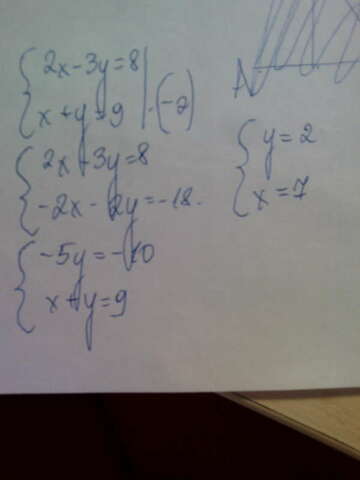 2x-3y=8
x+y=9 | ·(-2)
2x+3y=8
-2x-2y=-18.
-5y=-10
x+y=9
A
y=2
x=7